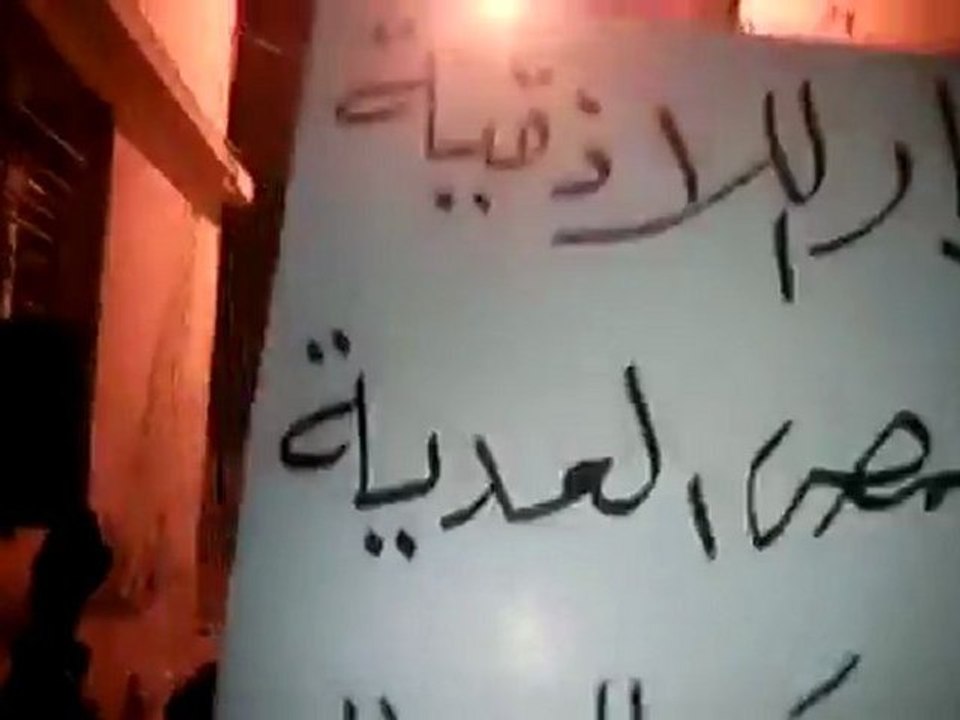 ار اللاذقية
مص العدية